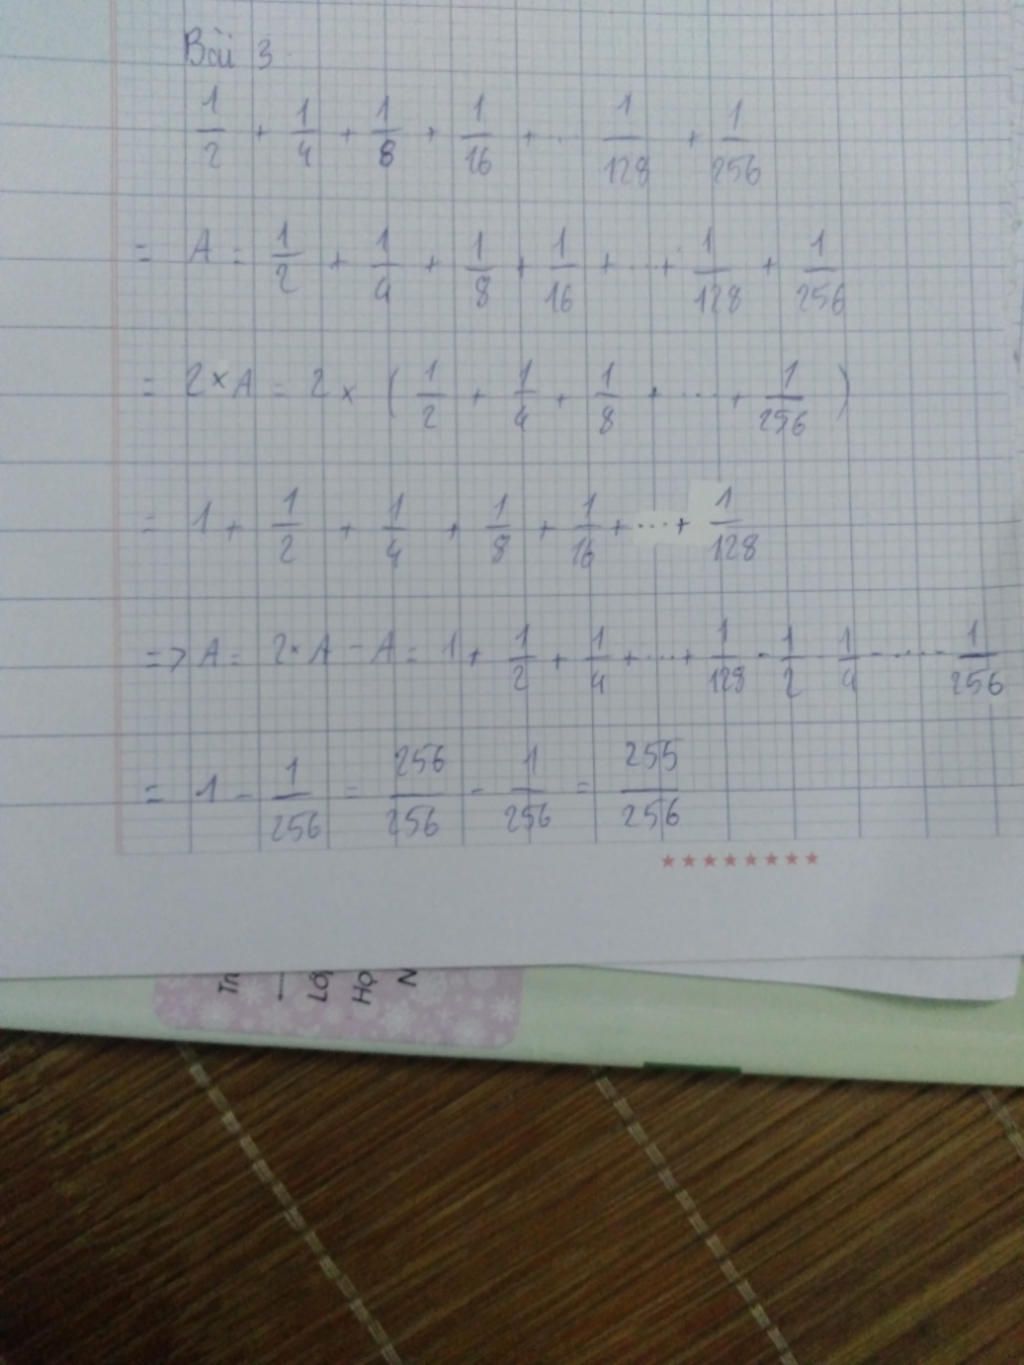 Bài 3
1/2 + 1/4 + 1/8 + 1/16 + ... 1/128 + 1/256
= A = 1/2 + 1/4 + 1/8 + 1/16 + ... + 1/128 + 1/256
= 2 × A = 2 × ( 1/2 + 1/4 + 1/8 + ... + 1/256 )
= 1 + 1/2 + 1/4 + 1/8 + 1/16 + ... + 1/128
=> A = 2 × A - A = 1 + 1/2 + 1/4 + ... + 1/128 - 1/2 - 1/4 - ... - 1/256
= 1 - 1/256 = 256/256 - 1/256 = 255/256
Họ